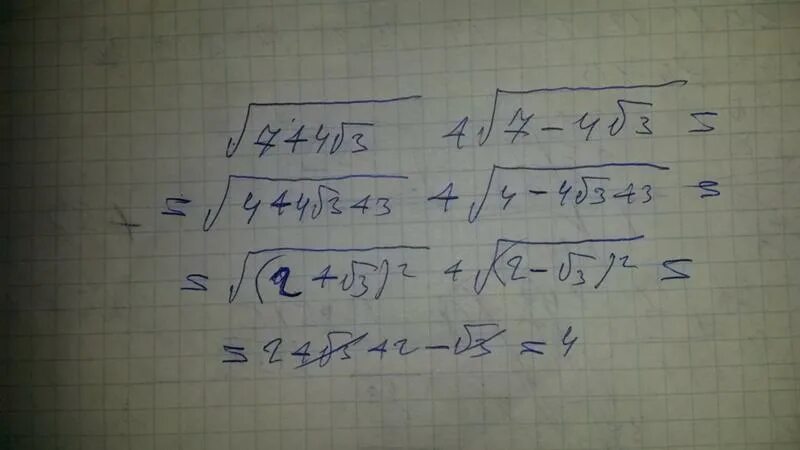 √(7+4√3) + √(7-4√3) =
= √(4+4√3+3) + √(4-4√3+3) =
= √((2+√3)²) + √((2-√3)²) =
= 2+√3+2-√3 = 4